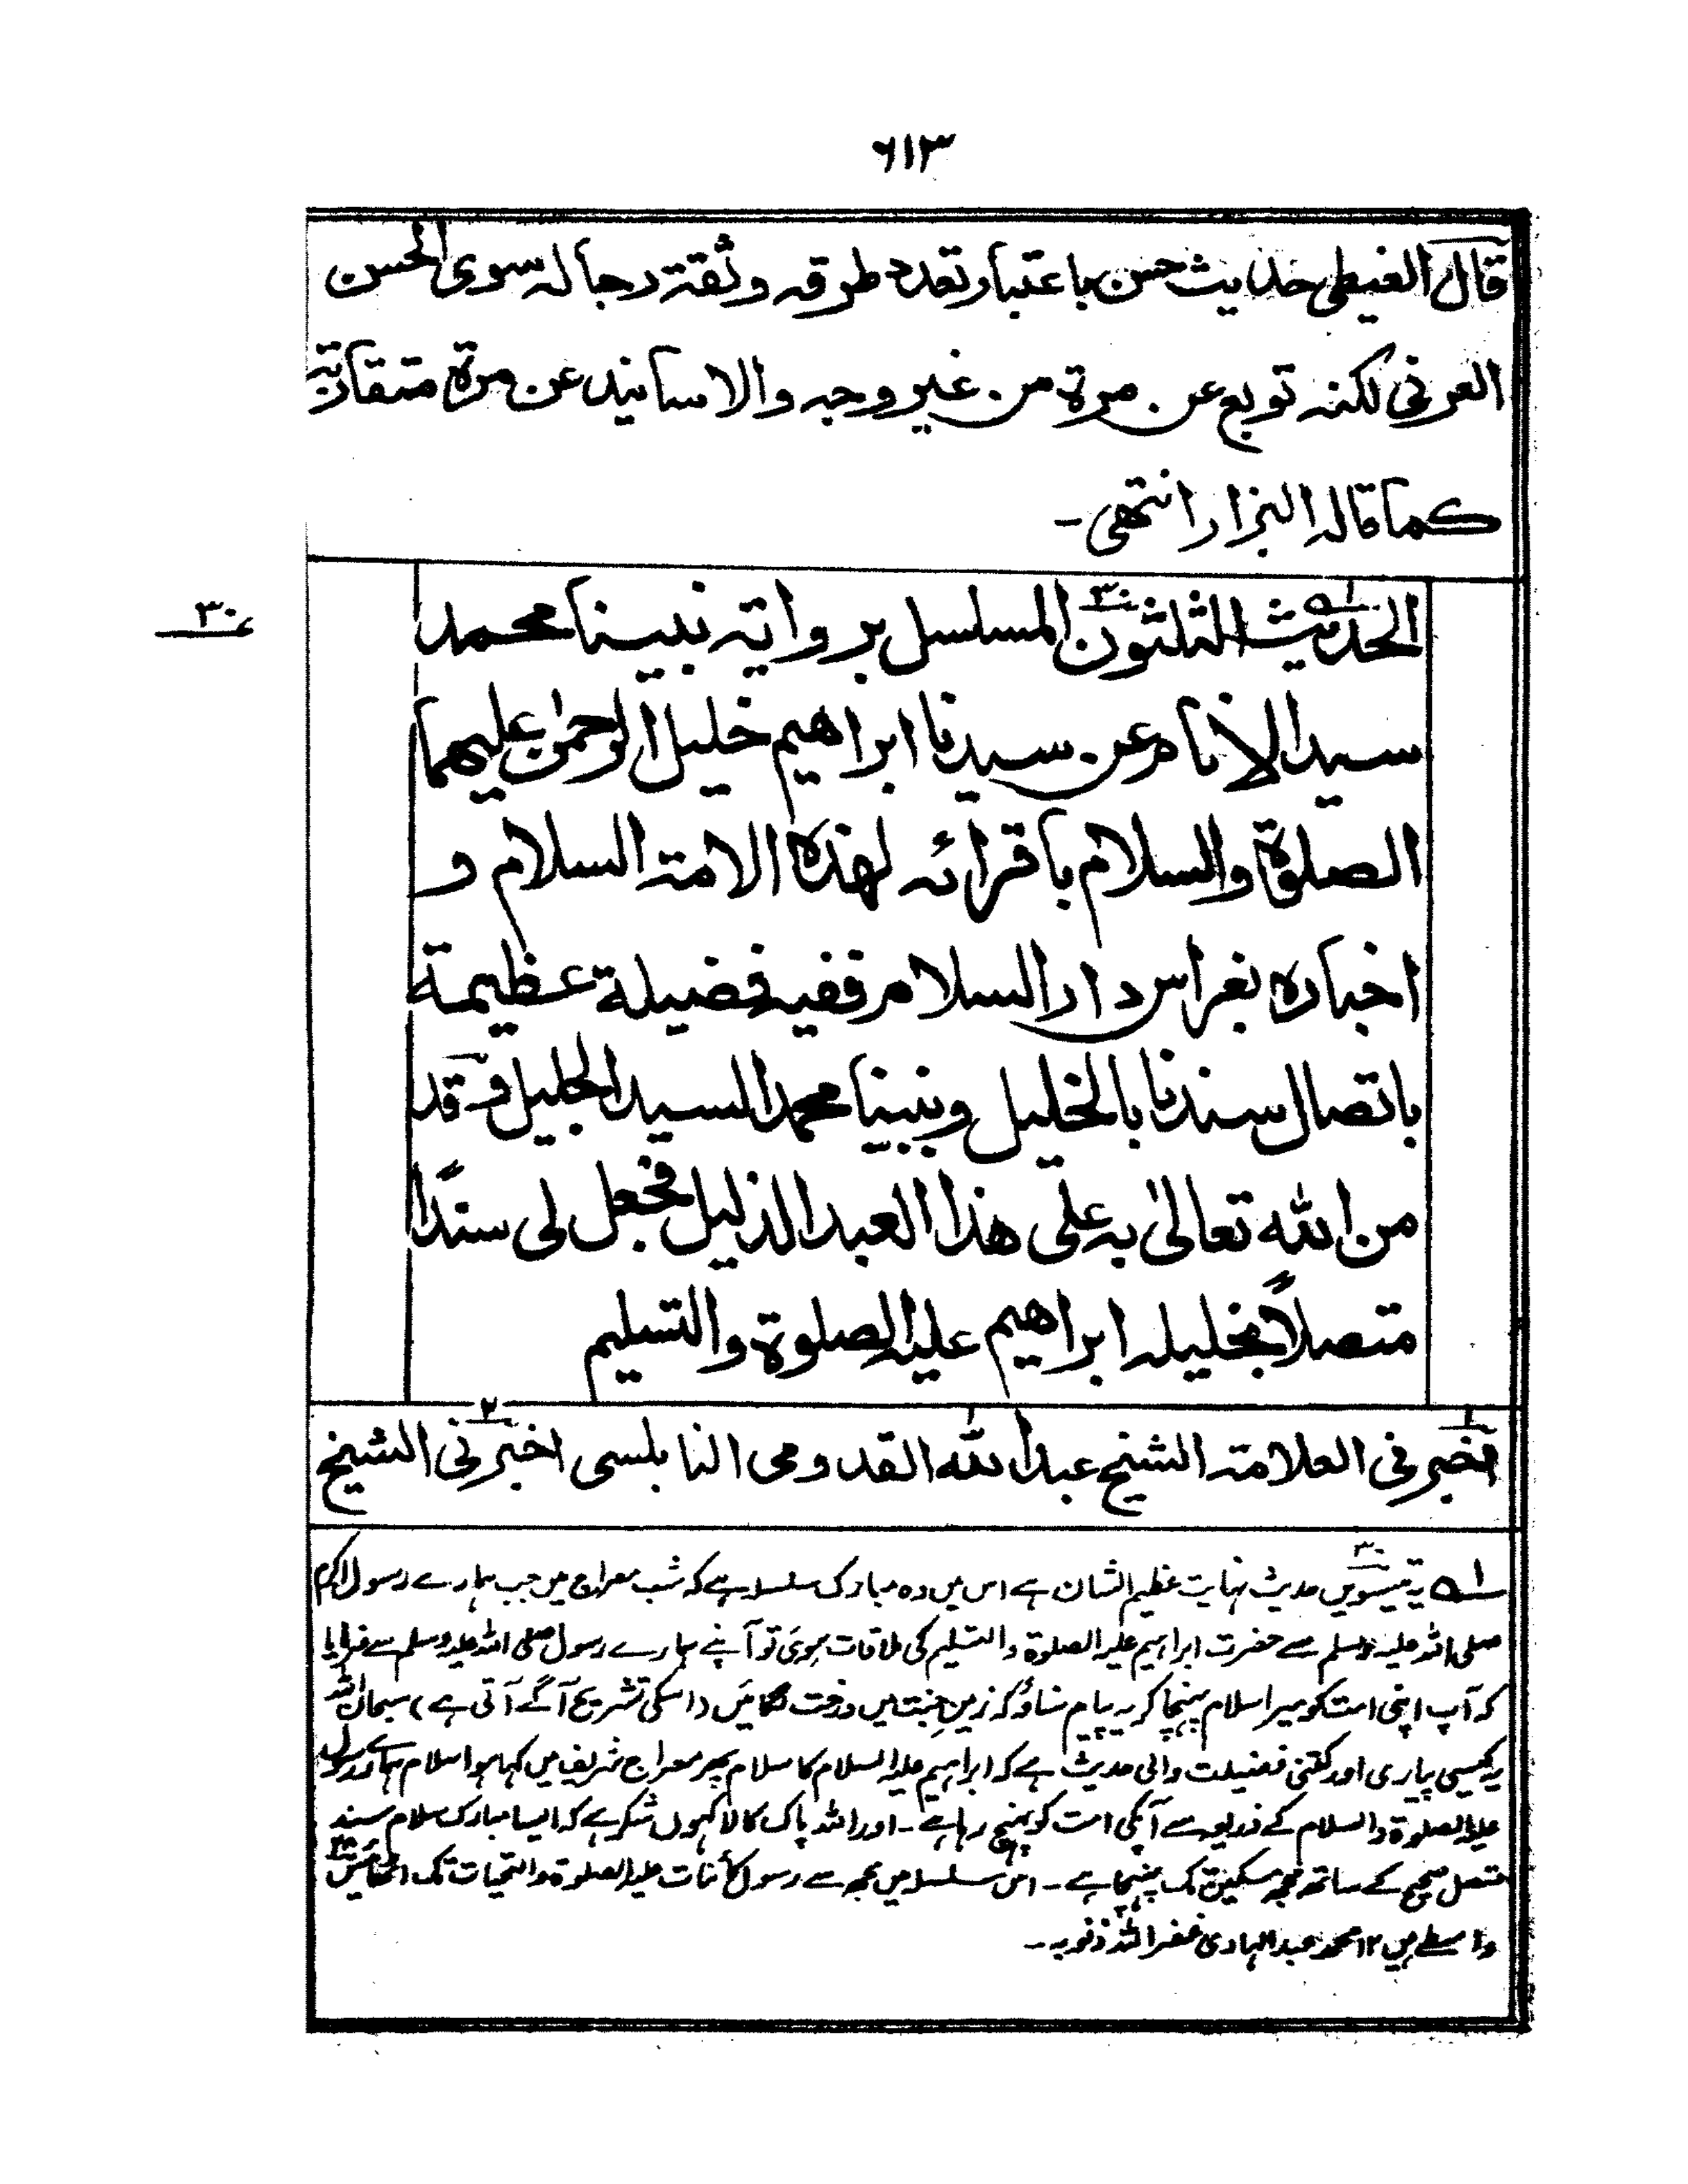 ۶۱۳
قال الغيطى حديث حسن باعتبار تعدد طرقه وثقة رجاله سوى الحسن
العرنى لكنه توبع عن مرة من غير وجه والاسانيد عن مرة متقاربة
كما قاله البزار انتهى۔
۳۰
الحديث الثلثون المسلسل برواية نبينا محمد
سيد الانام عن سيدنا ابراهيم خليل الرحمن عليهما
الصلوة والسلام باقرائه لهذه الامة السلام و
اخباره بغراس دار السلام ففيه فضيلة عظيمة
باتصال سندنا بالخليل ونبينا محمد السيد الجليل وقد
من الله تعالىٰ به على هذا العبد الذليل فجعل لى سندًا
متصلاً بخليله ابراهيم عليه الصلوة والتسليم
اخبرنى العلامة الشيخ عبد الله القدومى النابلسى اخبرنى الشيخ
۱؎ یہ تیسویں حدیث نہایت عظیم الشان ہے اس میں وہ مبارک سلسلہ ہے کہ شب معراج میں جب ہمارے رسول اکرم
صلی اللہ علیہ وسلم سے حضرت ابراہیم علیہ الصلوة والتسلیم کی ملاقات ہوئی تو آپنے ہمارے رسول صلی اللہ علیہ وسلم سے فرمایا
کہ آپ اپنی امت کو میرا سلام پہنچا کر یہ پیام سناؤ کہ زمین جنت میں درخت لگائیں (اسکی تشریح آگے آتی ہے) سبحان اللہ
یہ کیسی پیاری اور کتنی فضیلت والی حدیث ہے کہ ابراہیم علیہ السلام کا سلام پھر معراج شریف میں کہا ہوا سلام ہمارے رسول
علیہ الصلوة والسلام کے ذریعہ سے آپکی امت کو پہنچ رہا ہے۔ اور اللہ پاک کا لاکھوں شکر ہے کہ ایسا مبارک سلام سند
متصل صحیح کے ساتھ مجھ مسکین تک پہنچا ہے۔ اس سلسلہ میں مجھ سے رسول کائنات علیہ الصلوة والتحیات تک اٹھائیس
واسطے ہیں ۱۲ محمد عبد الہادی غفر اللہ ذنوبہ۔